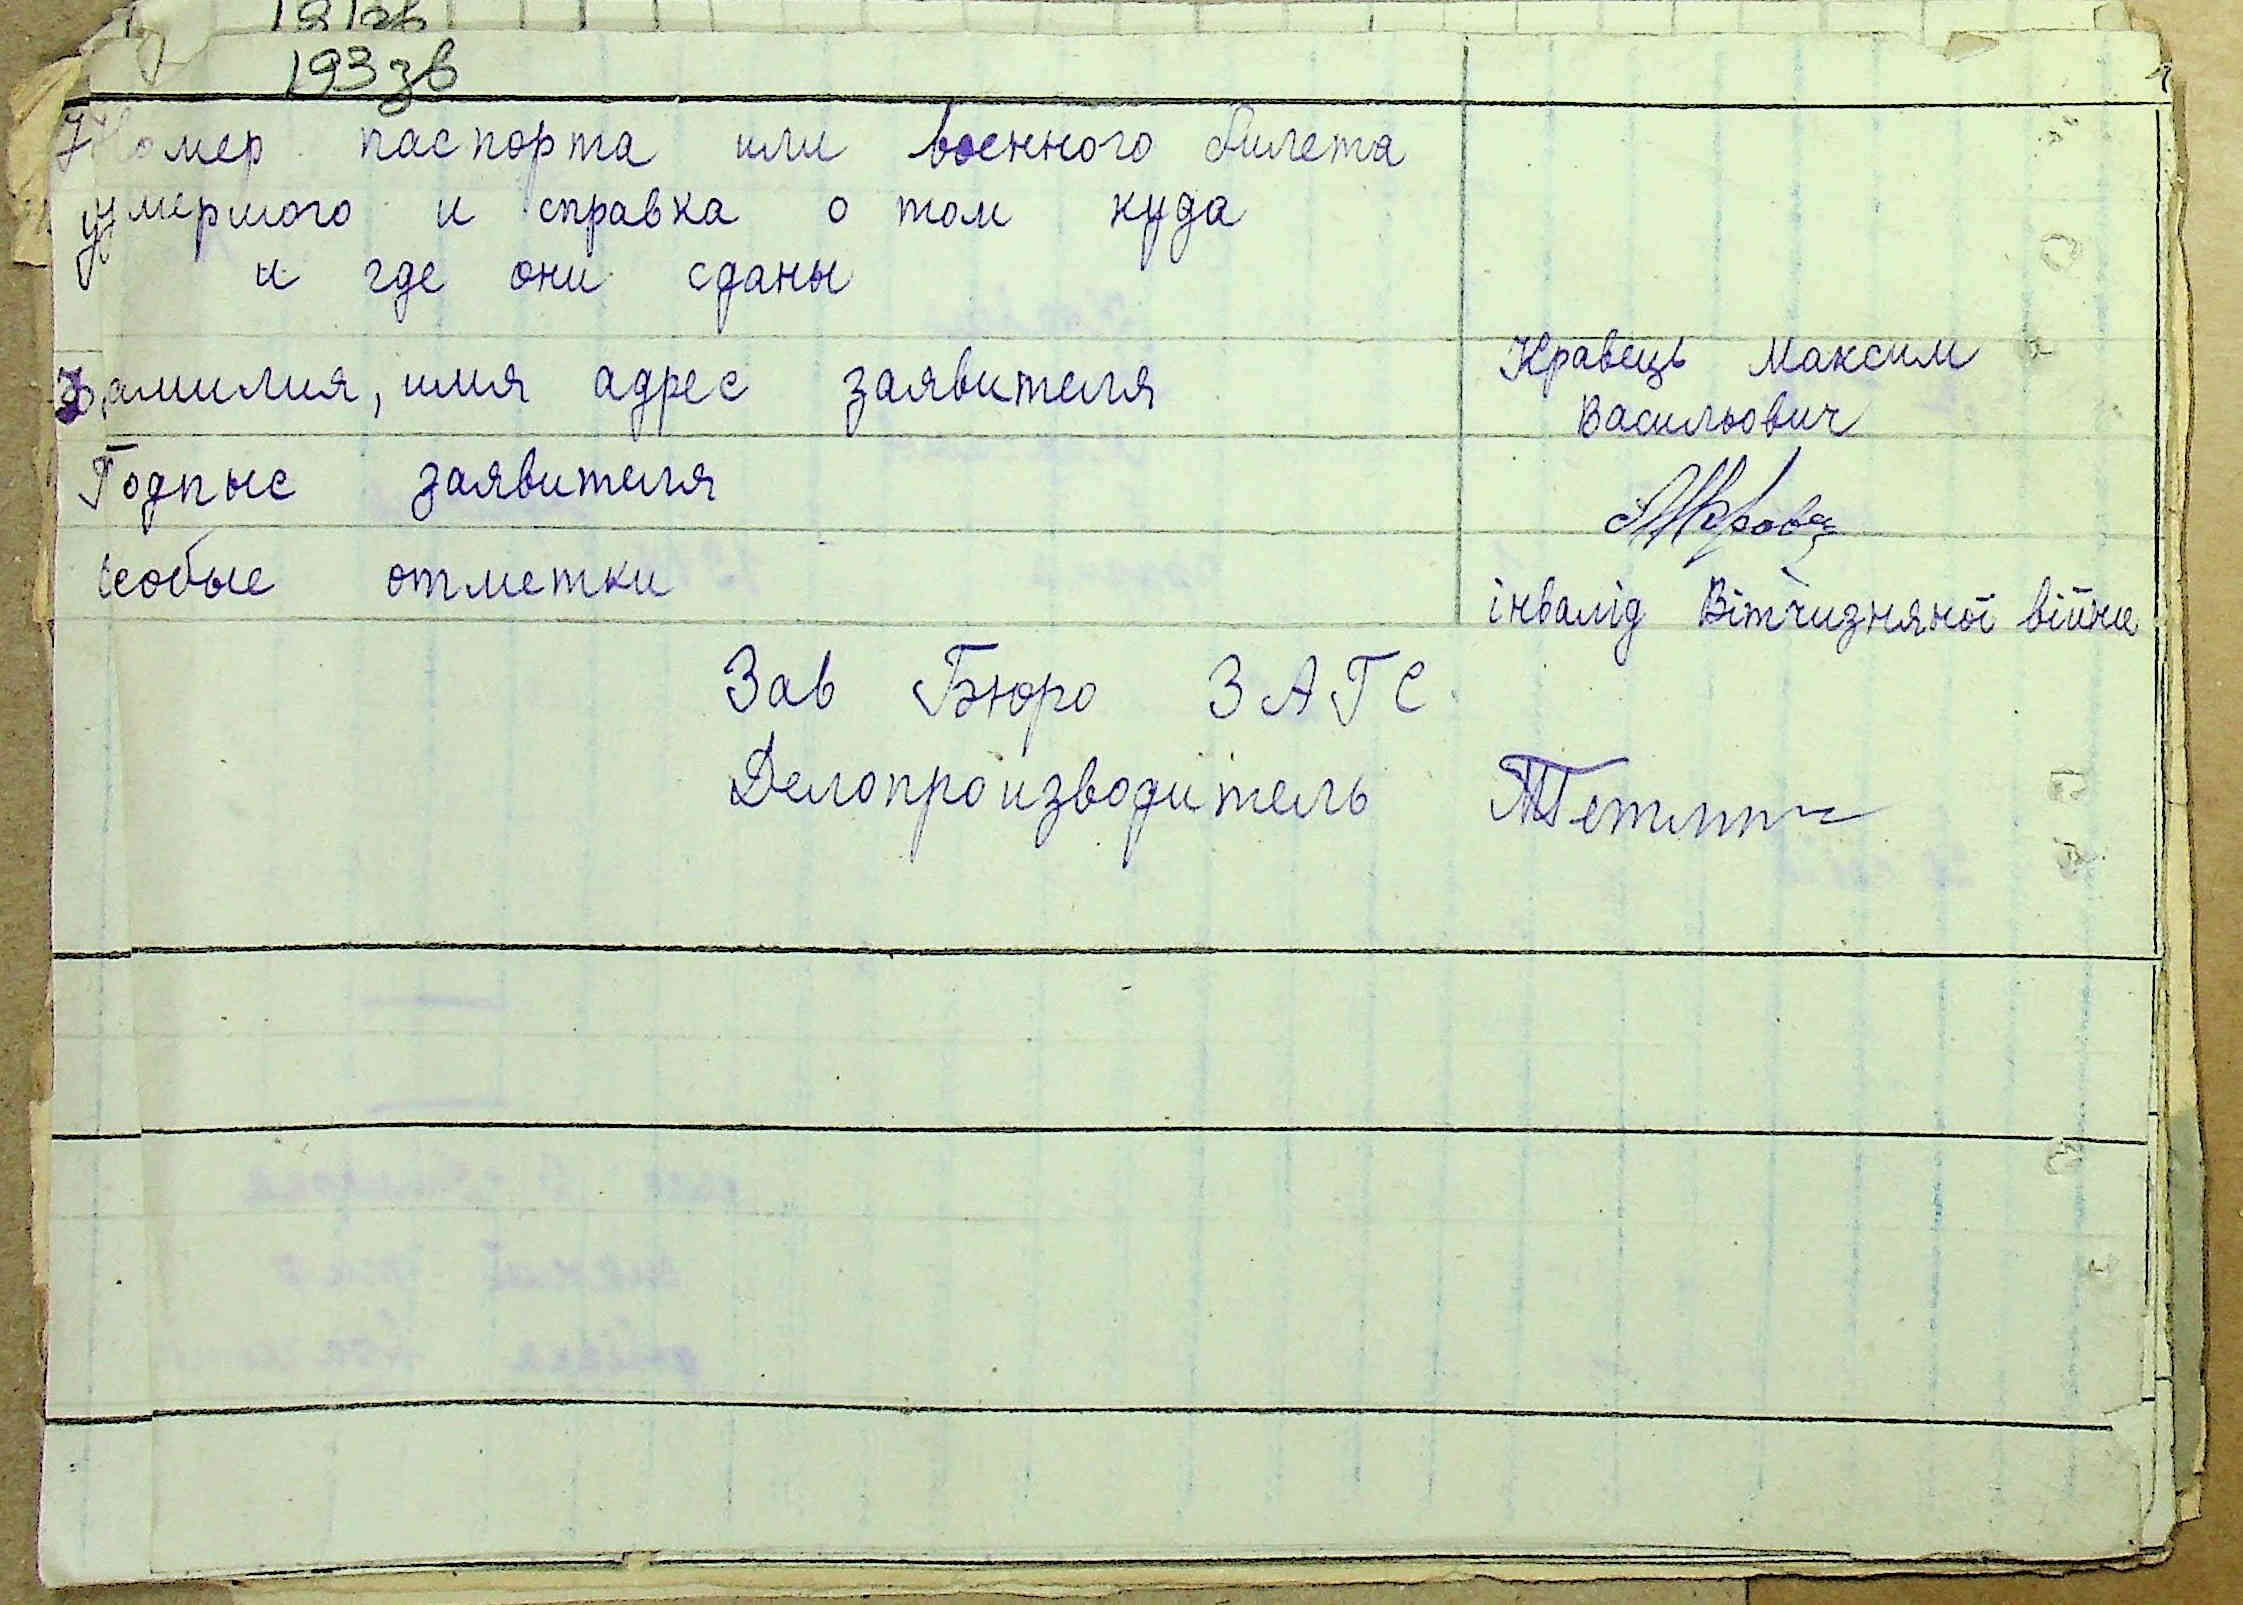 193зв
7 Номер паспорта или военного билета
умершого и справка о том куда
и где они сданы
Фамилия, имя адрес заявителя
Кравець Максим
Васильович
Подпыс заявителя
особые отметки
інвалід Вітчизняної війни
Зав Бюро ЗАГС
Делопроизводитель